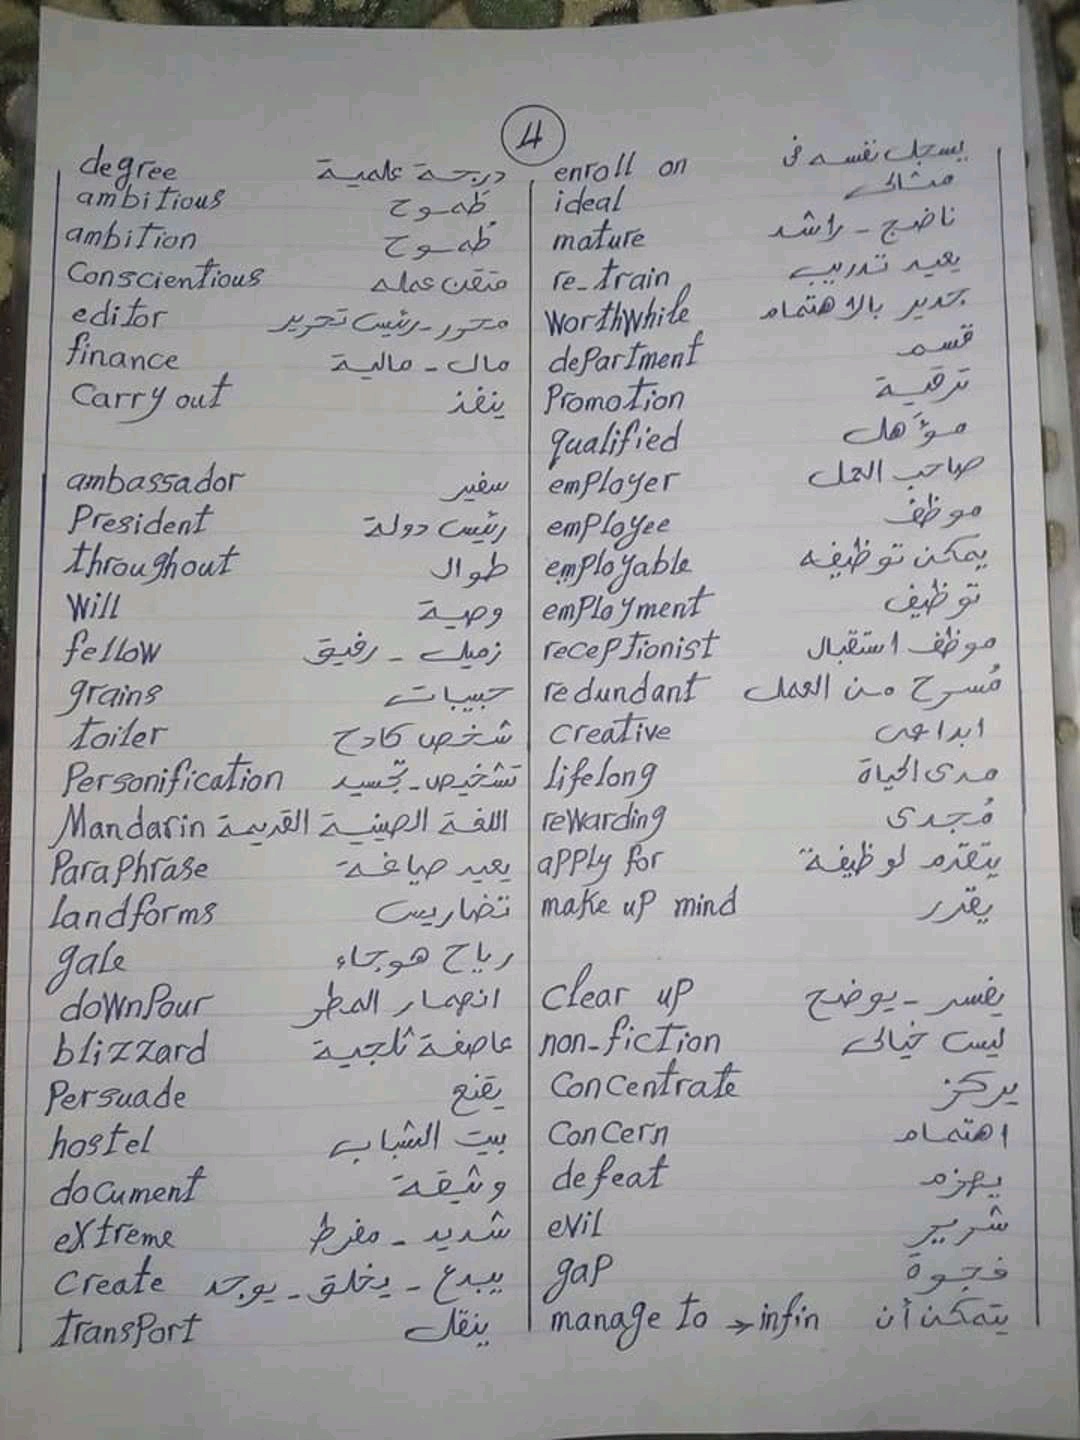 4
degree درجة علمية
ambitious طموح
ambition طُموح
Conscientious متقن عمله
editor محرر - رئيس تحرير
finance مال - مالية
Carry out ينفذ
ambassador سفير
President رئيس دولة
throughout طوال
Will وصية
fellow زميل - رفيق
grains حبيبات
toiler شخص كادح
Personification تشخيص - تجسيد
Mandarin اللغة الصينية القديمة
Paraphrase يعيد صياغة
landforms تضاريس
gale رياح هوجاء
downpour انهمار المطر
blizzard عاصفة ثلجية
Persuade يقنع
hostel بيت الشباب
document وثيقة
extreme شديد - مفرط
Create يبدع - يخلق - يوجد
transport ينقل
enroll on يسجل نفسه فى
ideal مثالى
mature ناضج - راشد
re-train يعيد تدريب
worthwhile جدير بالاهتمام
department قسم
Promotion ترقية
qualified مؤهل
employer صاحب العمل
employee موظف
employable يمكن توظيفه
employment توظيف
receptionist موظف استقبال
redundant مُسرح من العمل
Creative ابداعى
lifelong مدى الحياة
rewarding مُجدى
apply for يتقدم لوظيفة
make up mind يقرر
Clear up يفسر - يوضح
non-fiction ليس خيالى
Concentrate يركز
Concern اهتمام
defeat يهزم
evil شرير
gap فجوة
manage to → infin يتمكن أن